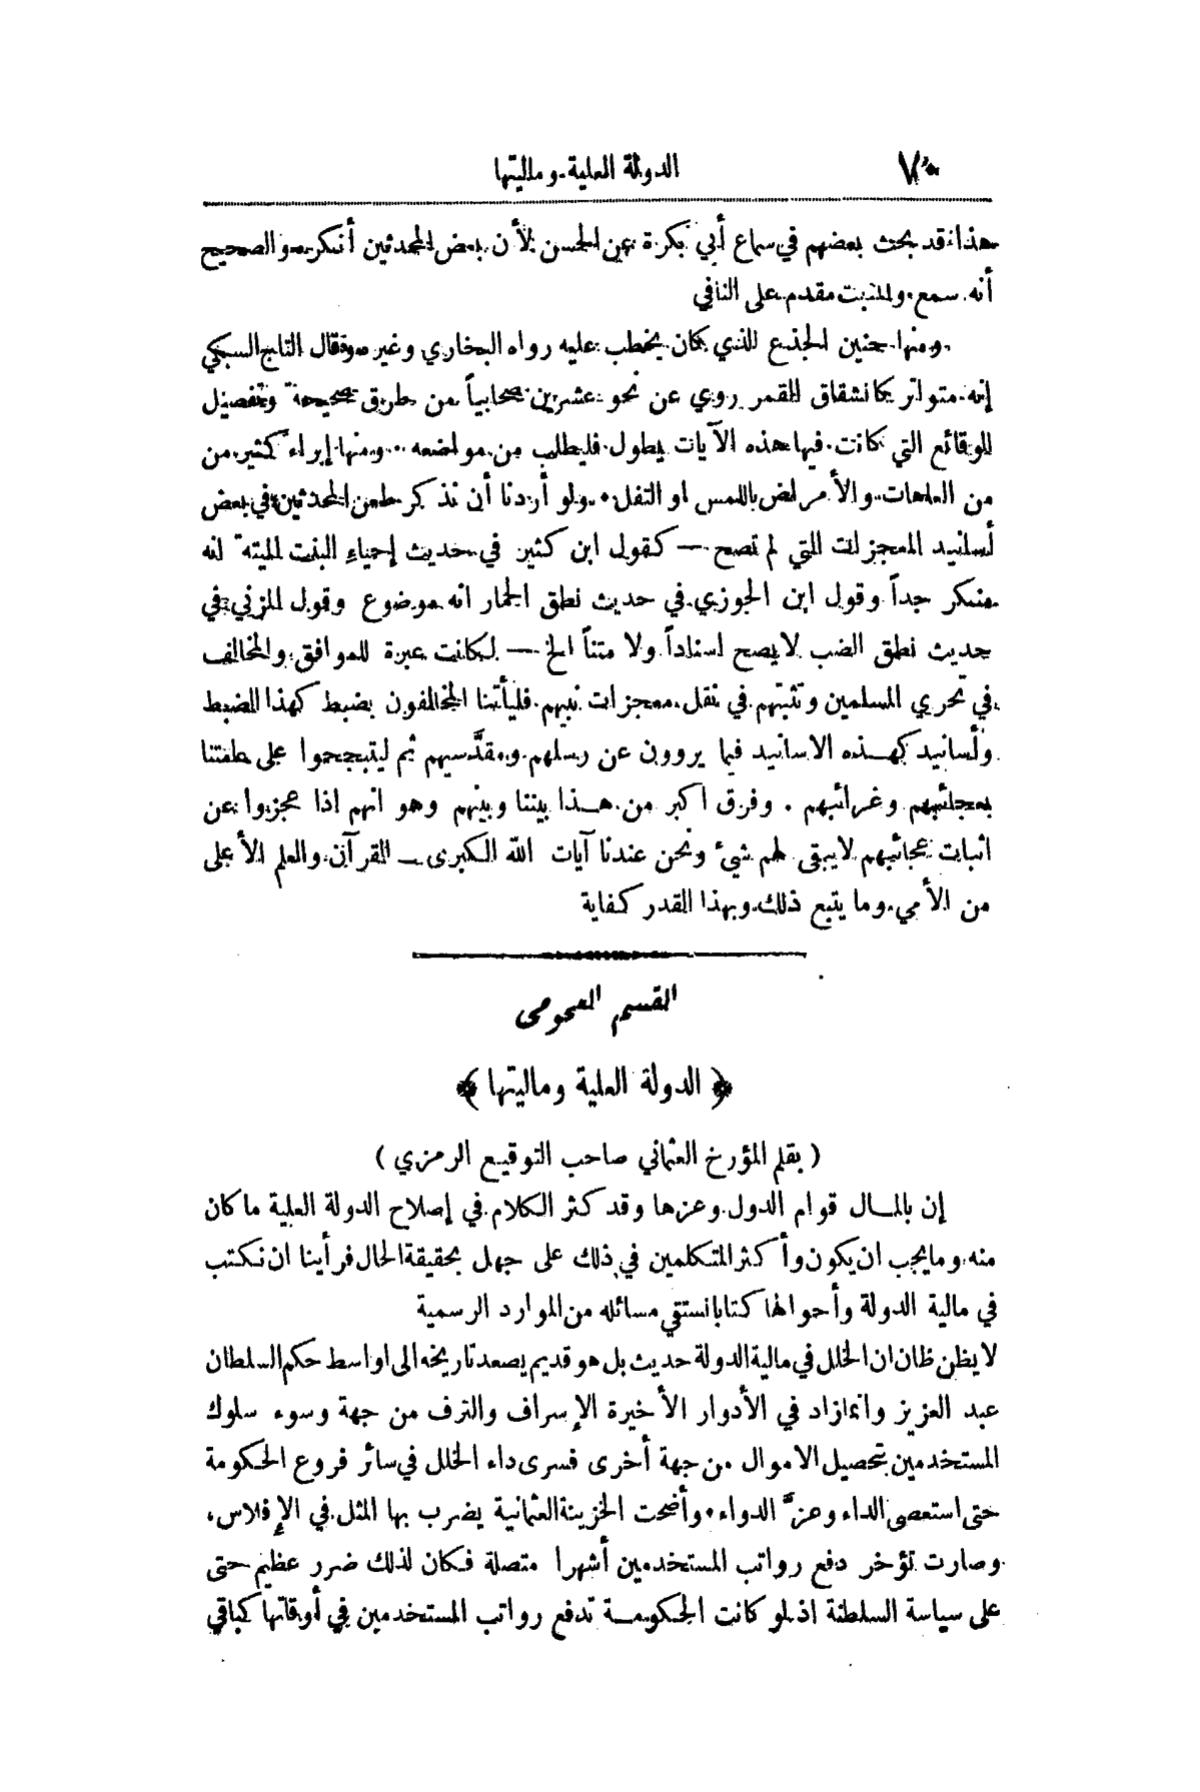 الدولة العلية وماليتها
هذا قد بحث بعضهم في سماع أبي بكرة من الحسن لأن بعض المحدثين أنكره والصحيح
أنه سمع والمثبت مقدم على النافي
ومنها حنين الجذع الذي كان يخطب عليه رواه البخاري وغيره وقال التاج السبكي
إنه متواتر كانشقاق القمر روي عن نحو عشرين صحابياً من طرق صحيحة وتفصيل
الوقائع التي كانت فيها هذه الآيات يطول فليطلب من مواضعه . ومنها إبراء كثير من
من العاهات والأمراض باللمس او التفل . ولو أردنا أن نذكر طعن المحدثين في بعض
أسانيد المعجزات التي لم تصح — كقول ابن كثير في حديث إحياء البنت الميتة انه
منكر جداً وقول ابن الجوزي في حديث نطق الحمار انه موضوع وقول المزني في
حديث نطق الضب لا يصح اسناداً ولا متناً الخ — لكانت عبرة للموافق والمخالف
في تحري المسلمين وتثبتهم في نقل معجزات نبيهم فليأتنا المخالفون بضبط كهذا الضبط
وأسانيد كهذه الاسانيد فيما يروون عن رسلهم ومقدَّسيهم ثم ليتبجحوا على ملتنا
بعجائبهم وغرائبهم . وفرق اكبر من هذا بيننا وبينهم وهو انهم اذا عجزوا عن
اثبات عجائبهم لا يبقى لهم شيء ونحن عندنا آيات الله الكبرى — القرآن والعلم الأعلى
من الأمي وما يتبع ذلك وبهذا القدر كفاية
القسم العمومي
﴿ الدولة العلية وماليتها ﴾
( بقلم المؤرخ العثماني صاحب التوقيع الرمزي )
إن بالمال قوام الدول وعزها وقد كثر الكلام في إصلاح الدولة العلية ما كان
منه وما يجب ان يكون وأكثر المتكلمين في ذلك على جهل بحقيقة الحال فرأينا ان نكتب
في مالية الدولة وأحوالها كتابا نستقي مسائله من الموارد الرسمية
لا يظن ظان ان الخلل في مالية الدولة حديث بل هو قديم يصعد تاريخه الى اواسط حكم السلطان
عبد العزيز وانما زاد في الأدوار الأخيرة الإسراف والترف من جهة وسوء سلوك
المستخدمين بتحصيل الاموال من جهة أخرى فسرى داء الخلل في سائر فروع الحكومة
حتى استعصى الداء وعزَّ الدواء . وأضحت الخزينة العثمانية يضرب بها المثل في الإفلاس ،
وصارت تؤخر دفع رواتب المستخدمين أشهرا متصلة فكان لذلك ضرر عظيم حتى
على سياسة السلطنة اذ لو كانت الحكومة تدفع رواتب المستخدمين في أوقاتها كباقي